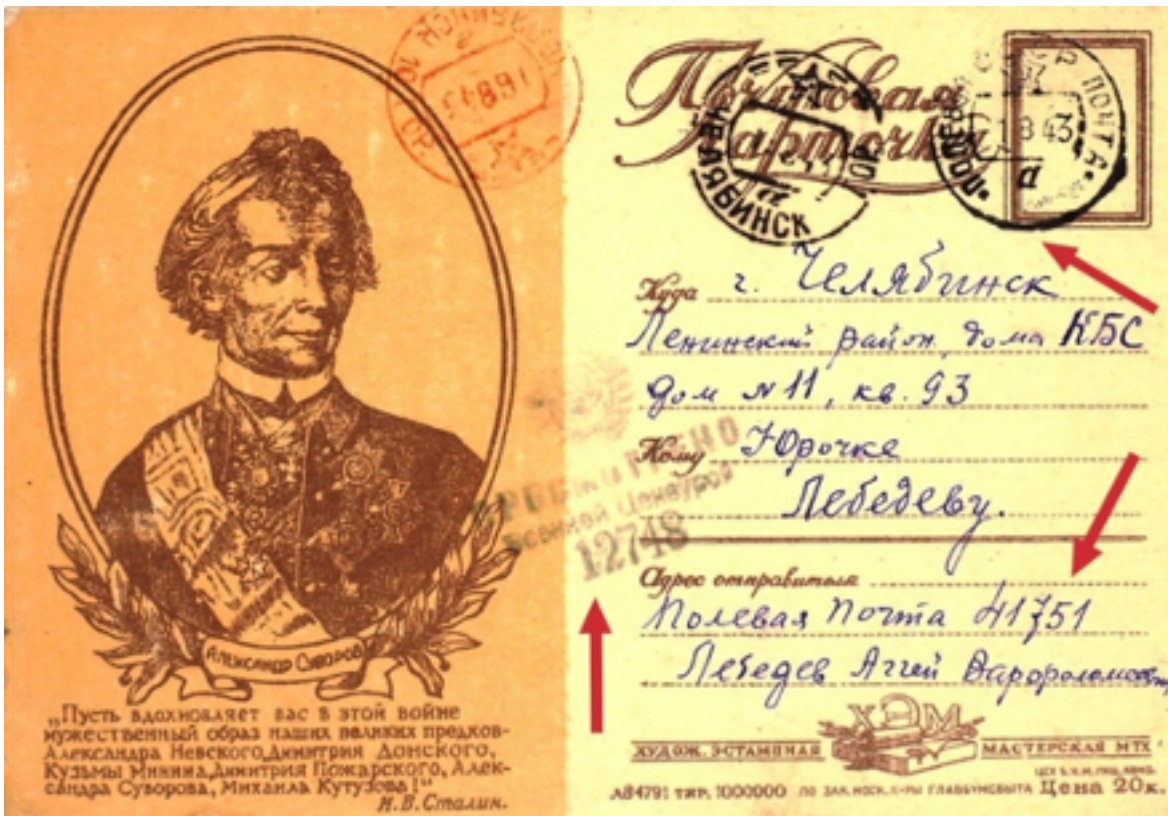 Александр Суворов
„Пусть вдохновляет вас в этой войне
мужественный образ наших великих предков-
Александра Невского, Димитрия Донского,
Кузьмы Минина, Димитрия Пожарского, Алек-
сандра Суворова, Михаила Кутузова!"
И.В. Сталин.
Почтовая
Карточка
ЧЕЛЯБИНСК
ПОЧТА
43
Куда г. Челябинск
Ленинский район, дома КБС
дом № 11, кв. 93
Кому Юрочке
Лебедеву.
Военной Цензурой
12748
Адрес отправителя
Полевая Почта 41751
Лебедев Аггей
ХЭМ
ХУДОЖ. ЭСТАМПНАЯ МАСТЕРСКАЯ МТХ
тир. 1000000 Цена 20к.